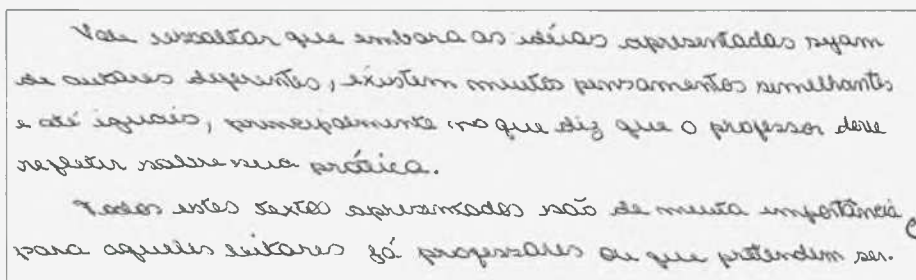 Vale ressaltar que embora as idéias apresentadas sejam
de autores diferentes, existem muitos pensamentos semelhantes
e até iguais, principalmente no que diz que o professor deve
refletir sobre sua prática.
Todos estes textos apresentados são de muita importância
para aqueles leitores já professores ou que pretendem ser.